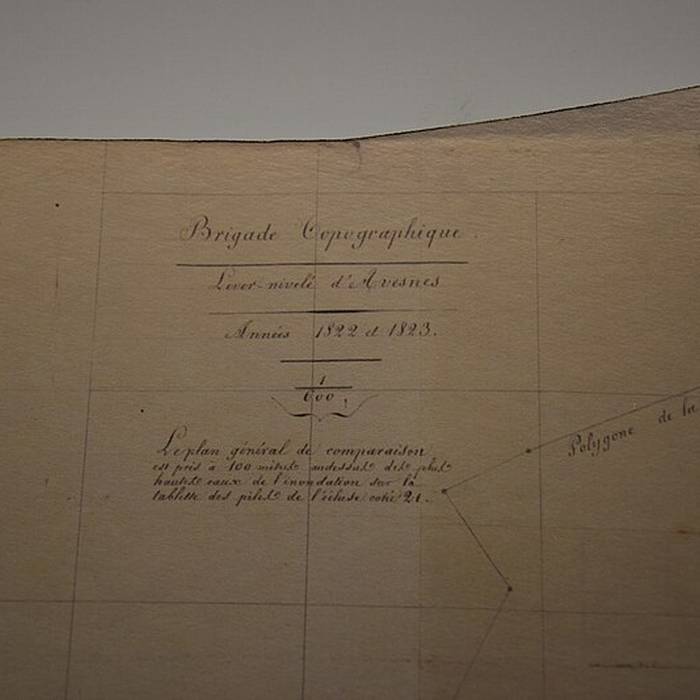 Brigade Topographique.
Lever-nivelé d'Avesnes
Années 1822 et 1823.
1
600
Le plan général de comparaison
est pris à 100 mètres audessus des plus
hautes eaux de l'inondation sur la
tablette des piles de l'écluse cotée 21.
Polygone de la